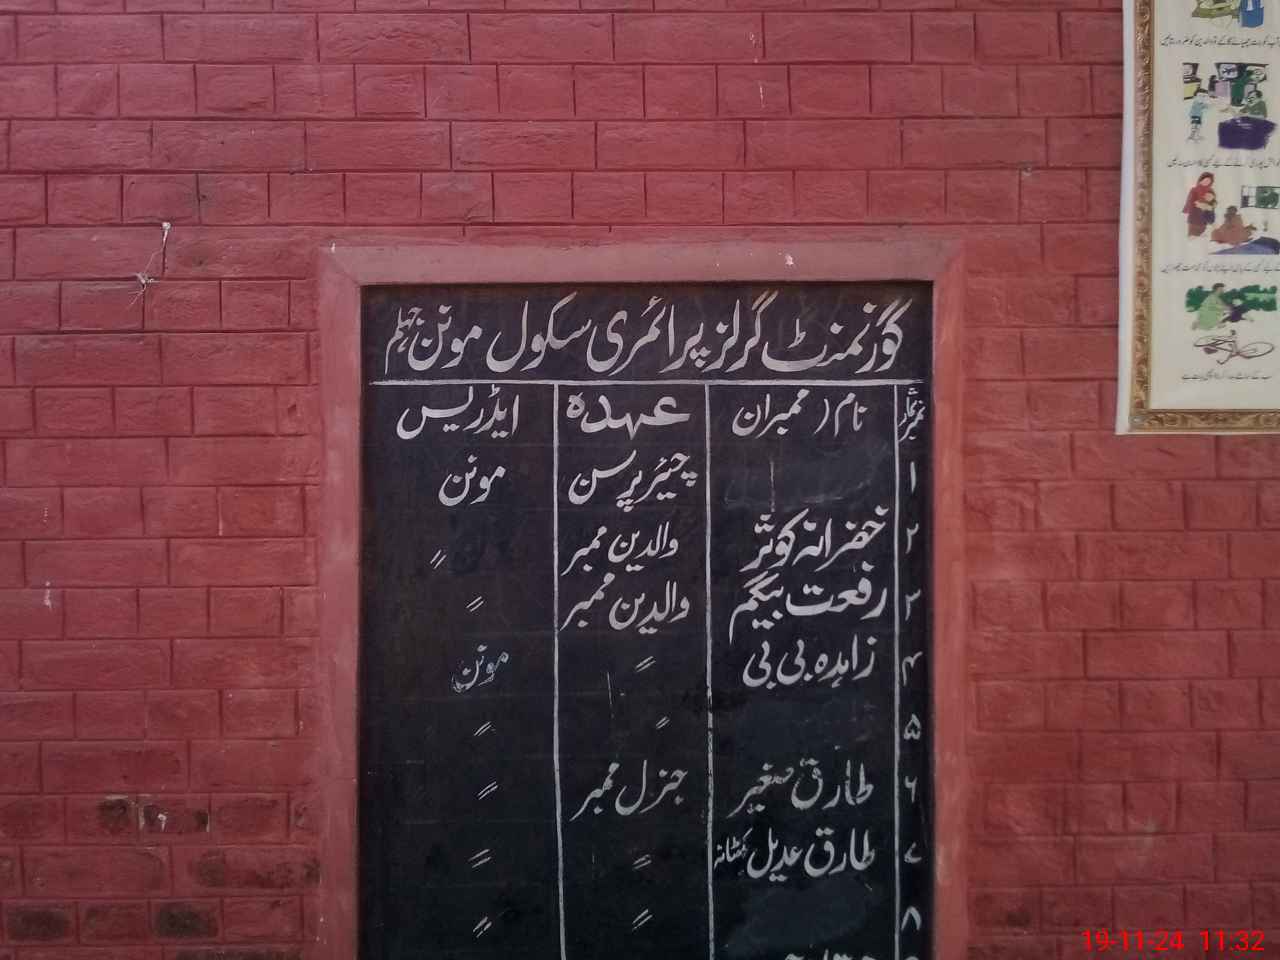 گورنمنٹ گرلز پرائمری سکول مونن جہلم
نمبر شمار نام / ممبران عہدہ ایڈریس
۱ چیئر پرسن مونن
۲ خفرانہ کوثر والدین ممبر 〃
۳ رفعت بیگم والدین ممبر 〃
۴ زاہدہ بی بی 〃 مونن
۵ 〃 〃
۶ طارق صغیر جنرل ممبر 〃
۷ طارق عدیل کٹھانہ 〃 〃
۸ 〃 〃
19-11-24 11:32